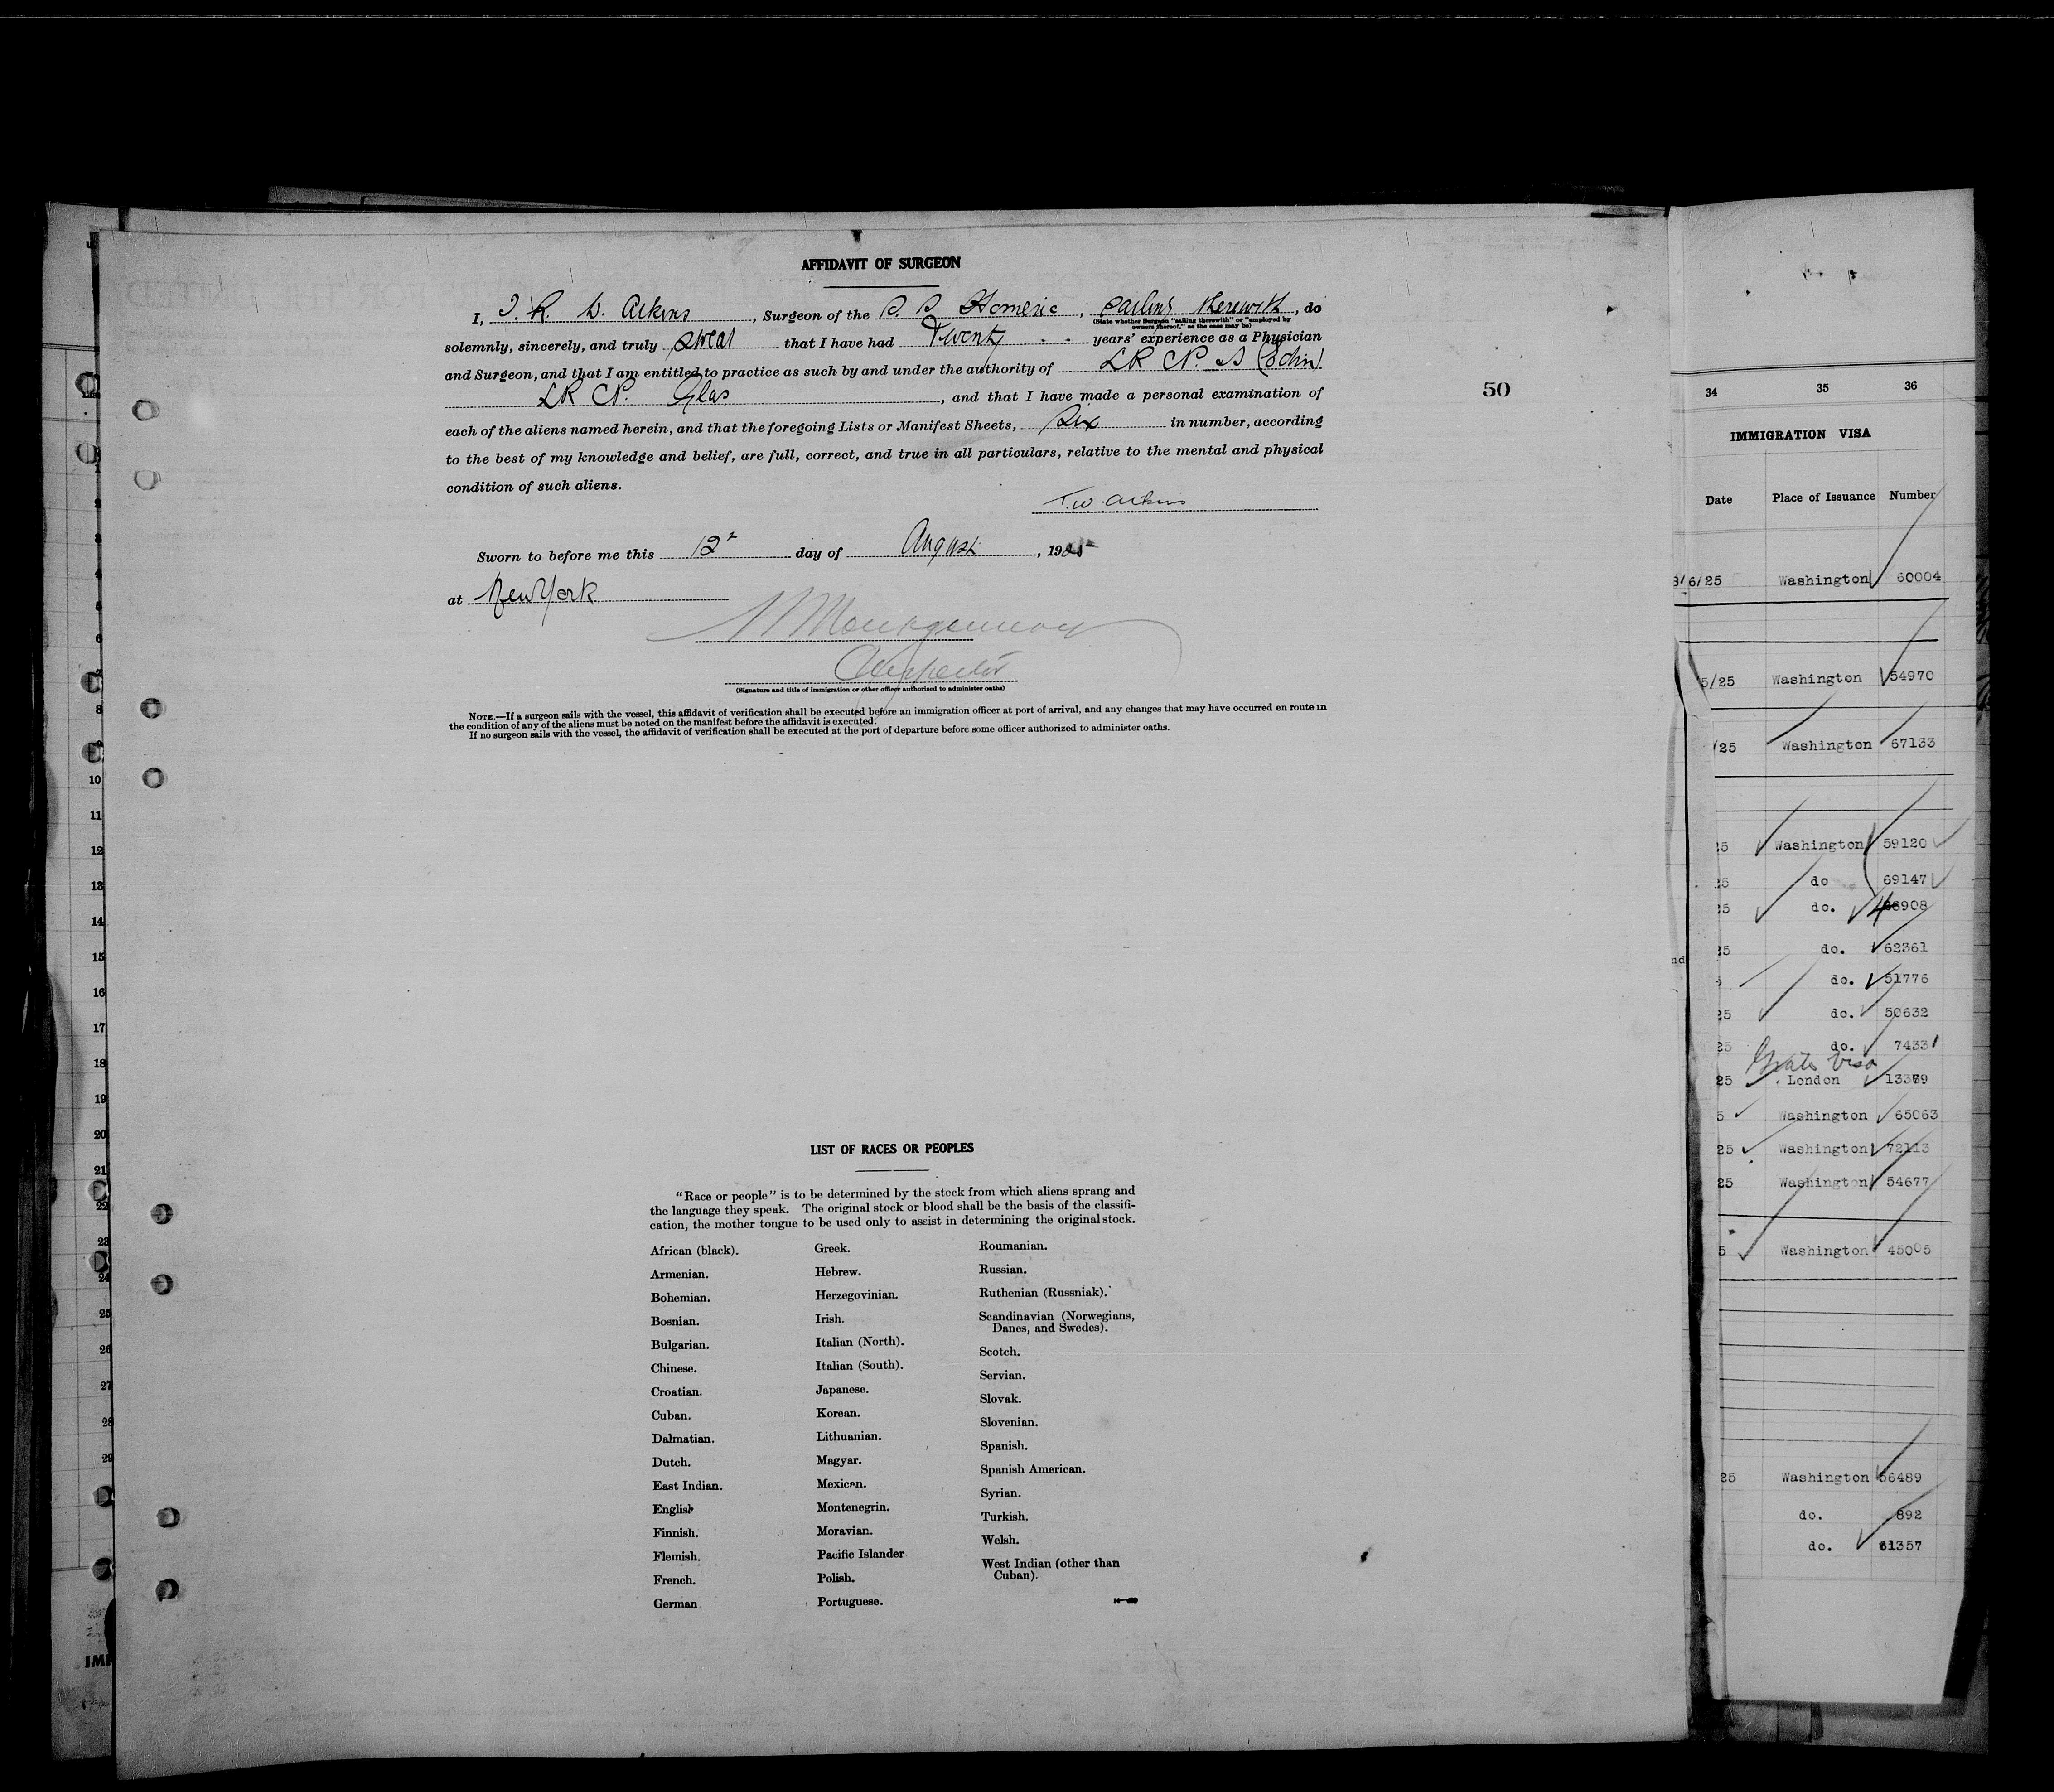 AFFIDAVIT OF SURGEON
I, J. R. W. Atkins, Surgeon of the S. S. Homeric, sailing therewith, do
(State whether Surgeon "sailing therewith" or "employed by
owners thereof," as the case may be)
solemnly, sincerely, and truly swear that I have had Twenty years' experience as a Physician
and Surgeon, and that I am entitled to practice as such by and under the authority of LR CP. S (Edin)
LR CP. Glas, and that I have made a personal examination of
50
each of the aliens named herein, and that the foregoing Lists or Manifest Sheets, Six in number, according
to the best of my knowledge and belief, are full, correct, and true in all particulars, relative to the mental and physical
condition of such aliens.
T. W. Atkins
Sworn to before me this 12 day of August, 1925
at New York
Montgomery
Inspector
(Signature and title of immigration or other officer authorized to administer oaths)
NOTE.—If a surgeon sails with the vessel, this affidavit of verification shall be executed before an immigration officer at port of arrival, and any changes that may have occurred en route in
the condition of any of the aliens must be noted on the manifest before the affidavit is executed.
If no surgeon sails with the vessel, the affidavit of verification shall be executed at the port of departure before some officer authorized to administer oaths.
LIST OF RACES OR PEOPLES
"Race or people" is to be determined by the stock from which aliens sprang and
the language they speak. The original stock or blood shall be the basis of the classifi-
cation, the mother tongue to be used only to assist in determining the original stock.
African (black).
Armenian.
Bohemian.
Bosnian.
Bulgarian.
Chinese.
Croatian.
Cuban.
Dalmatian.
Dutch.
East Indian.
English
Finnish.
Flemish.
French.
German
Greek.
Hebrew.
Herzegovinian.
Irish.
Italian (North).
Italian (South).
Japanese.
Korean.
Lithuanian.
Magyar.
Mexican.
Montenegrin.
Moravian.
Pacific Islander
Polish.
Portuguese.
Roumanian.
Russian.
Ruthenian (Russniak).
Scandinavian (Norwegians,
Danes, and Swedes).
Scotch.
Servian.
Slovak.
Slovenian.
Spanish.
Spanish American.
Syrian.
Turkish.
Welsh.
West Indian (other than
Cuban).
34 35 36
IMMIGRATION VISA
Date Place of Issuance Number
6/25 Washington 60004
5/25 Washington 54970
/25 Washington 67133
25 Washington 59120
25 do 69147
25 do. 908
25 do. 62361
do. 51776
25 do. 50632
25 do. 7433
Gratis Visa
25 London
5 Washington 65063
25 Washington 72113
25 Washington 54677
5 Washington 45005
25 Washington 56489
do. 892
do. 61357
2
3
4
5
6
7
8
9
10
11
12
13
14
15
16
17
18
19
20
21
22
23
24
25
26
27
28
29